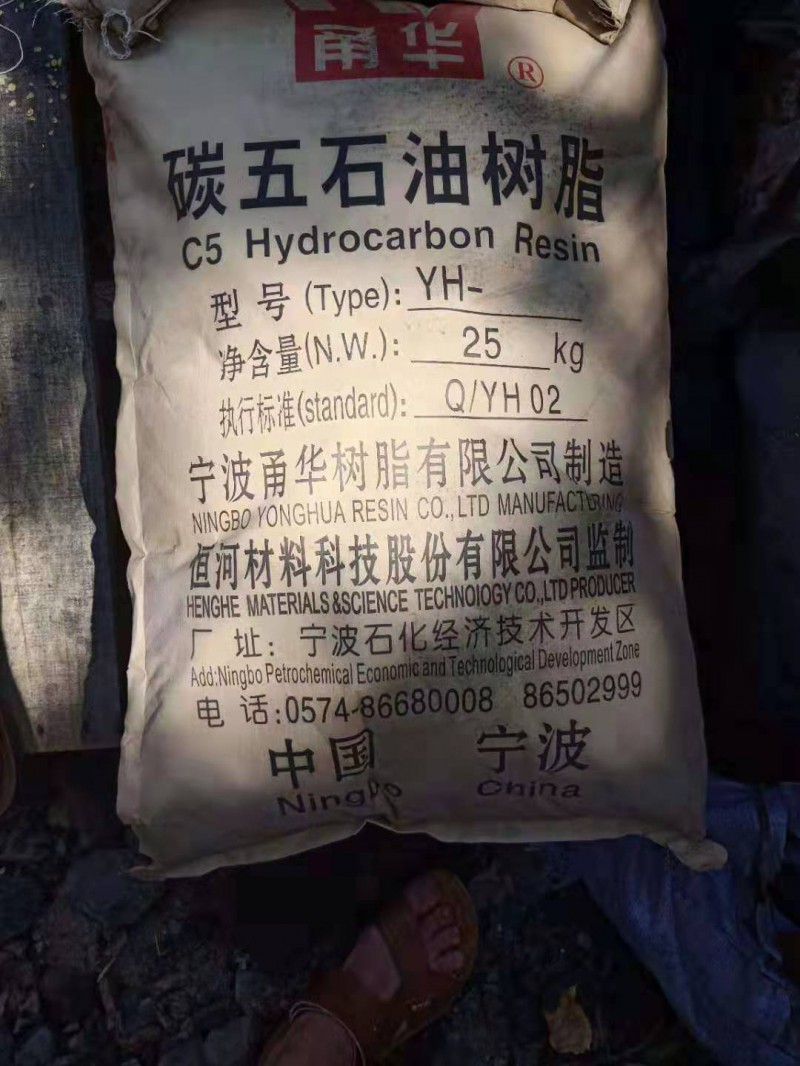 甬华
®
碳五石油树脂
C5 Hydrocarbon Resin
型号(Type): YH-
净含量(N.W.): 25 kg
执行标准(standard): Q/YH 02
宁波甬华树脂有限公司制造
NINGBO YONGHUA RESIN CO.,LTD MANUFACTURING
恒河材料科技股份有限公司监制
HENGHE MATERIALS&SCIENCE TECHNOIOGY CO.,LTD PRODUCER
厂 址: 宁波石化经济技术开发区
Add:Ningbo Petrochemical Economic and Technological Development Zone
电 话:0574-86680008 86502999
中国 宁波
Ningbo China